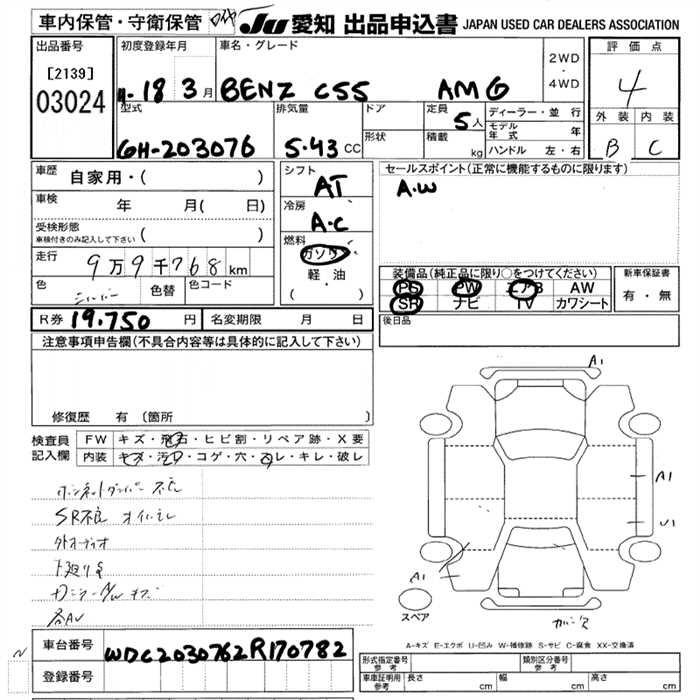 車内保管・守衛保管 JU 愛知 出品申込書 JAPAN USED CAR DEALERS ASSOCIATION
出品番号 初度登録年月 車名・グレード 2WD・4WD 評価点
[2139] 03024 H-18 3月 BENZ C55 AMG 4
型式 排気量 ドア 定員 ディーラー・並行 外装 内装
GH-203076 5.43 CC 形状 積載 kg 5人 モデル年式 年 B C
ハンドル 左・右
車歴 自家用・( ) シフト AT セールスポイント(正常に機能するものに限ります)
車検 年 月( 日) 冷房 A.C A.W
受検形態 車検付きのみ記入して下さい ( ) 燃料 ガソリン
走行 9万9千768km 軽油 装備品(純正品に限り○をつけてください) 新車保証書
色 シルバー 色替 色コード ( ) PS PW エアB AW 有・無
SR ナビ TV カワシート
R券 19.750円 名変期限 月 日 後日品
注意事項申告欄(不具合内容等は具体的に記入して下さい)
A1
修復歴 有(箇所
検査員記入欄 FW キズ・飛石・ヒビ割・リペア跡・X要
内装 キズ・汚レ・コゲ・穴・スレ・キレ・破レ
A1
ボンネットダンパー不良
SR不良 オイルモレ
U1
外オーディオ
下廻りサ
A1
各AU
スペア
車台番号 WDC2030762R170782
A-キズ E-エクボ U-凹み W-補修跡 S-サビ C-腐食 XX-交換済
登録番号
形式指定番号 参考 類別区分番号 参考
車庫証明用 参考 長さ cm 幅 cm 高さ cm